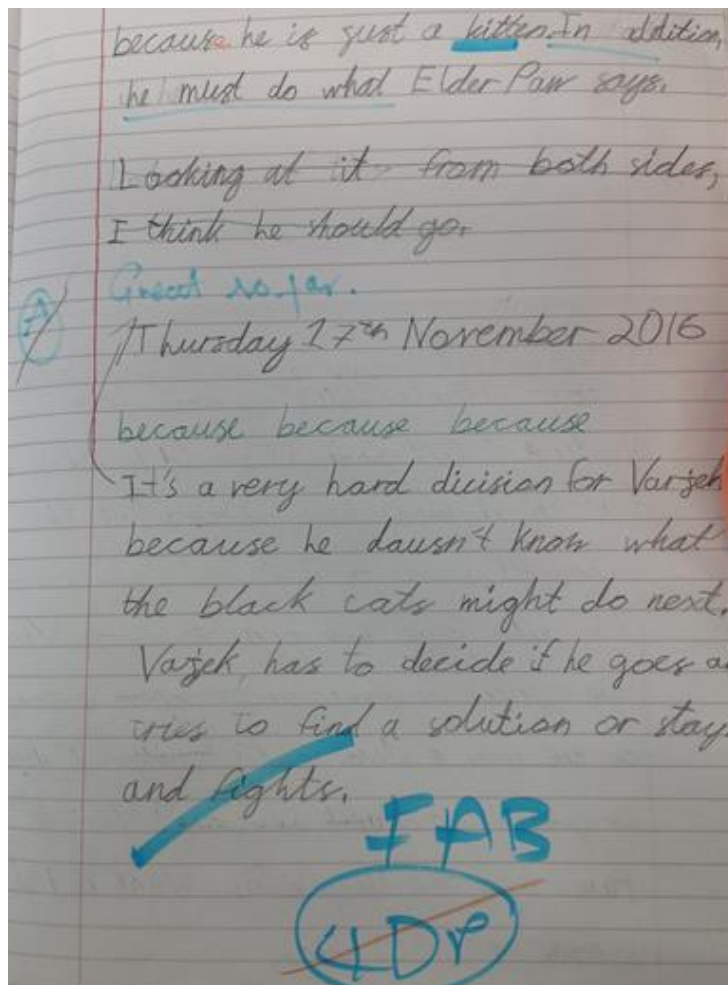 because he is just a kitten. In addition,
he must do what Elder Paw says.
Looking at it from both sides,
I think he should go.
Great so far.
Thursday 17th November 2016
because because because
It's a very hard dicision for Varjek
because he dausn't know what
the black cats might do next.
Varjek has to decide if he goes a
tries to find a solution or stay
and fights.
FAB
4DP